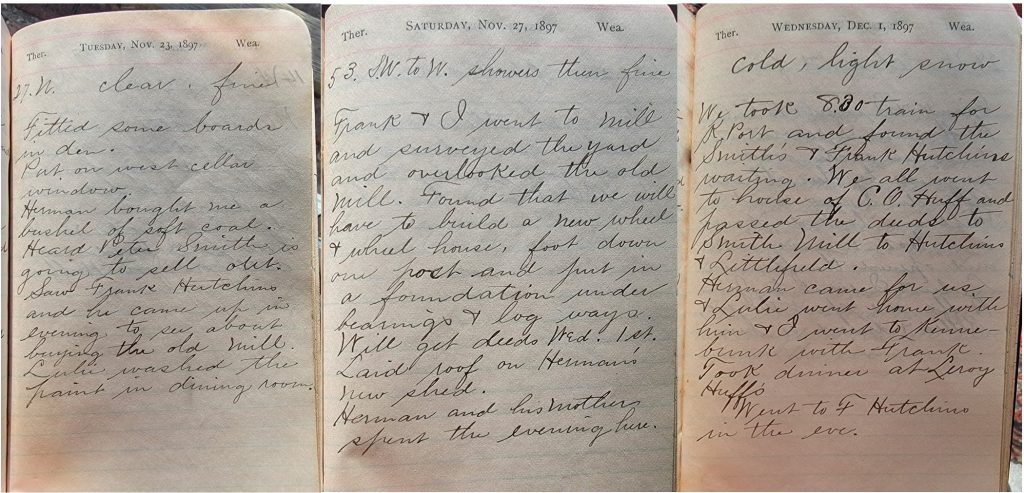 Ther. TUESDAY, NOV. 23, 1897 Wea.
27. N. clear, fine
Fitted some boards
in den.
Put on west cellar
window.
Herman bought me a
bushel of soft coal.
Heard Peter Smith is
going to sell out.
Saw Frank Hutchins
and he came up in
evening to see about
buying the old mill.
Lulie washed the
paint in dining room.
Ther. SATURDAY, NOV. 27, 1897 Wea.
53. S.W. to W. showers then fine
Frank & I went to mill
and surveyed the yard
and overlooked the old
mill. Found that we will
have to build a new wheel
& wheel house, foot down
one post and put in
a foundation under
bearings & log ways.
Will get deeds Wed. 1st.
Laid roof on Hermans
new shed.
Herman and his mother
spent the evening here.
Ther. WEDNESDAY, DEC. 1, 1897 Wea.
cold, light snow
We took 8.30 train for
K. Port and found the
Smith's & Frank Hutchins
waiting. We all went
to house of C. O. Huff and
passed the deeds to
Smith Mill to Hutchins
& Littlefield.
Herman came for us
& Lulie went home with
him & I went to Kenne-
bunk with Frank.
Took dinner at Leroy
Huff's
Went to F Hutchins
in the eve.